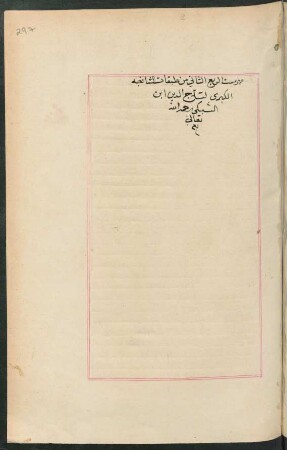 فهرست الربع الثاني من طبقات الشافعيه
الكبرى لتاج الدين ابن
السبكي رحمه الله
تعالى